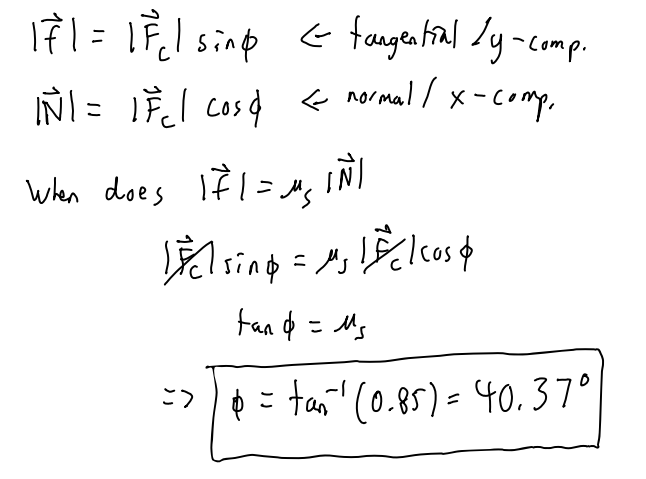 |f⃗| = |F⃗c| sinϕ ← tangential / y-comp.
|N⃗| = |F⃗c| cosϕ ← normal / x-comp.
When does |f⃗| = μs |N⃗|
|F⃗c| sinϕ = μs |F⃗c| cosϕ
tanϕ = μs
=> ϕ = tan⁻¹(0.85) = 40.37°